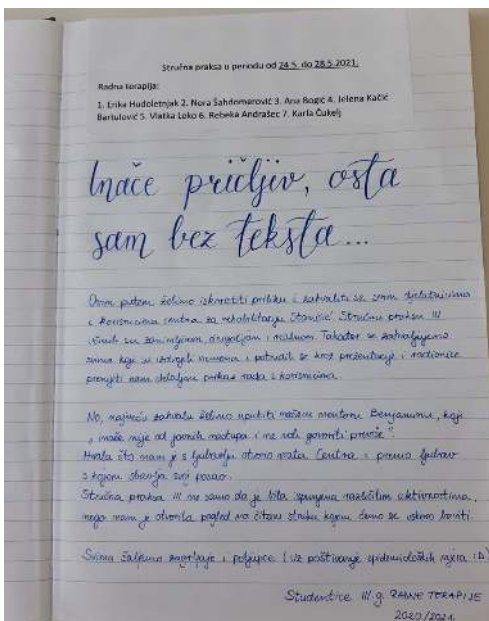 Stručna praksa u periodu od 24.5. do 28.5.2021.
Radna terapija:
1. Erika Hudoletnjak 2. Nora Šahdomerović 3. Ana Bogić 4. Jelena Kačić
Bartulović 5. Vlatka Loko 6. Rebeka Andrašec 7. Karla Čukelj
Inače pričljiv, osta
sam bez teksta...
Ovim putem želimo iskoristiti priliku i zahvaliti se svim djelatnicima
i korisnicima centra za rehabilitaciju Stančić. Stručnu praksu III
učinili su zanimljivom, drugačijom i realnom. Također se zahvaljujemo
svima koji su izdvojili vremena i potrudili se kroz prezentacije i radionice
prenijeti nam detaljan prikaz rada s korisnicima.
No, najveću zahvalu želimo uputiti našem mentoru Benjaminu, koji
"inače nije od javnih nastupa i ne voli govoriti previše".
Hvala što nam je s ljubavlju otvorio vrata Centra i prenio ljubav
s kojom obavlja svoj posao.
Stručna praksa III ne samo da je bila ispunjena različitim aktivnostima,
nego nam je otvorila pogled na čitavu struku kojom ćemo se uskoro baviti.
Svima šaljemo zagrljaje i poljupce (uz poštivanje epidemioloških mjera :D)
Studentice III.g. RADNE TERAPIJE
2020/2021.